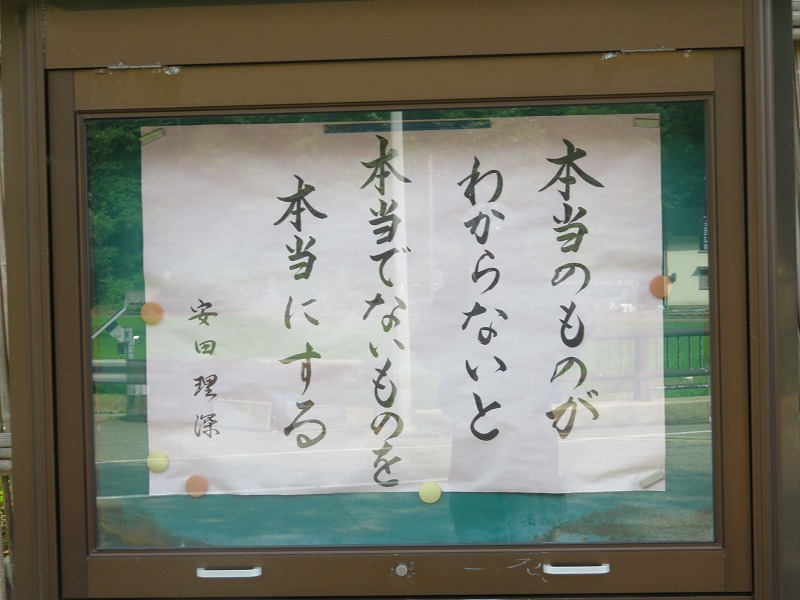 本当のものが
わからないと
本当でないものを
本当にする
安田理深